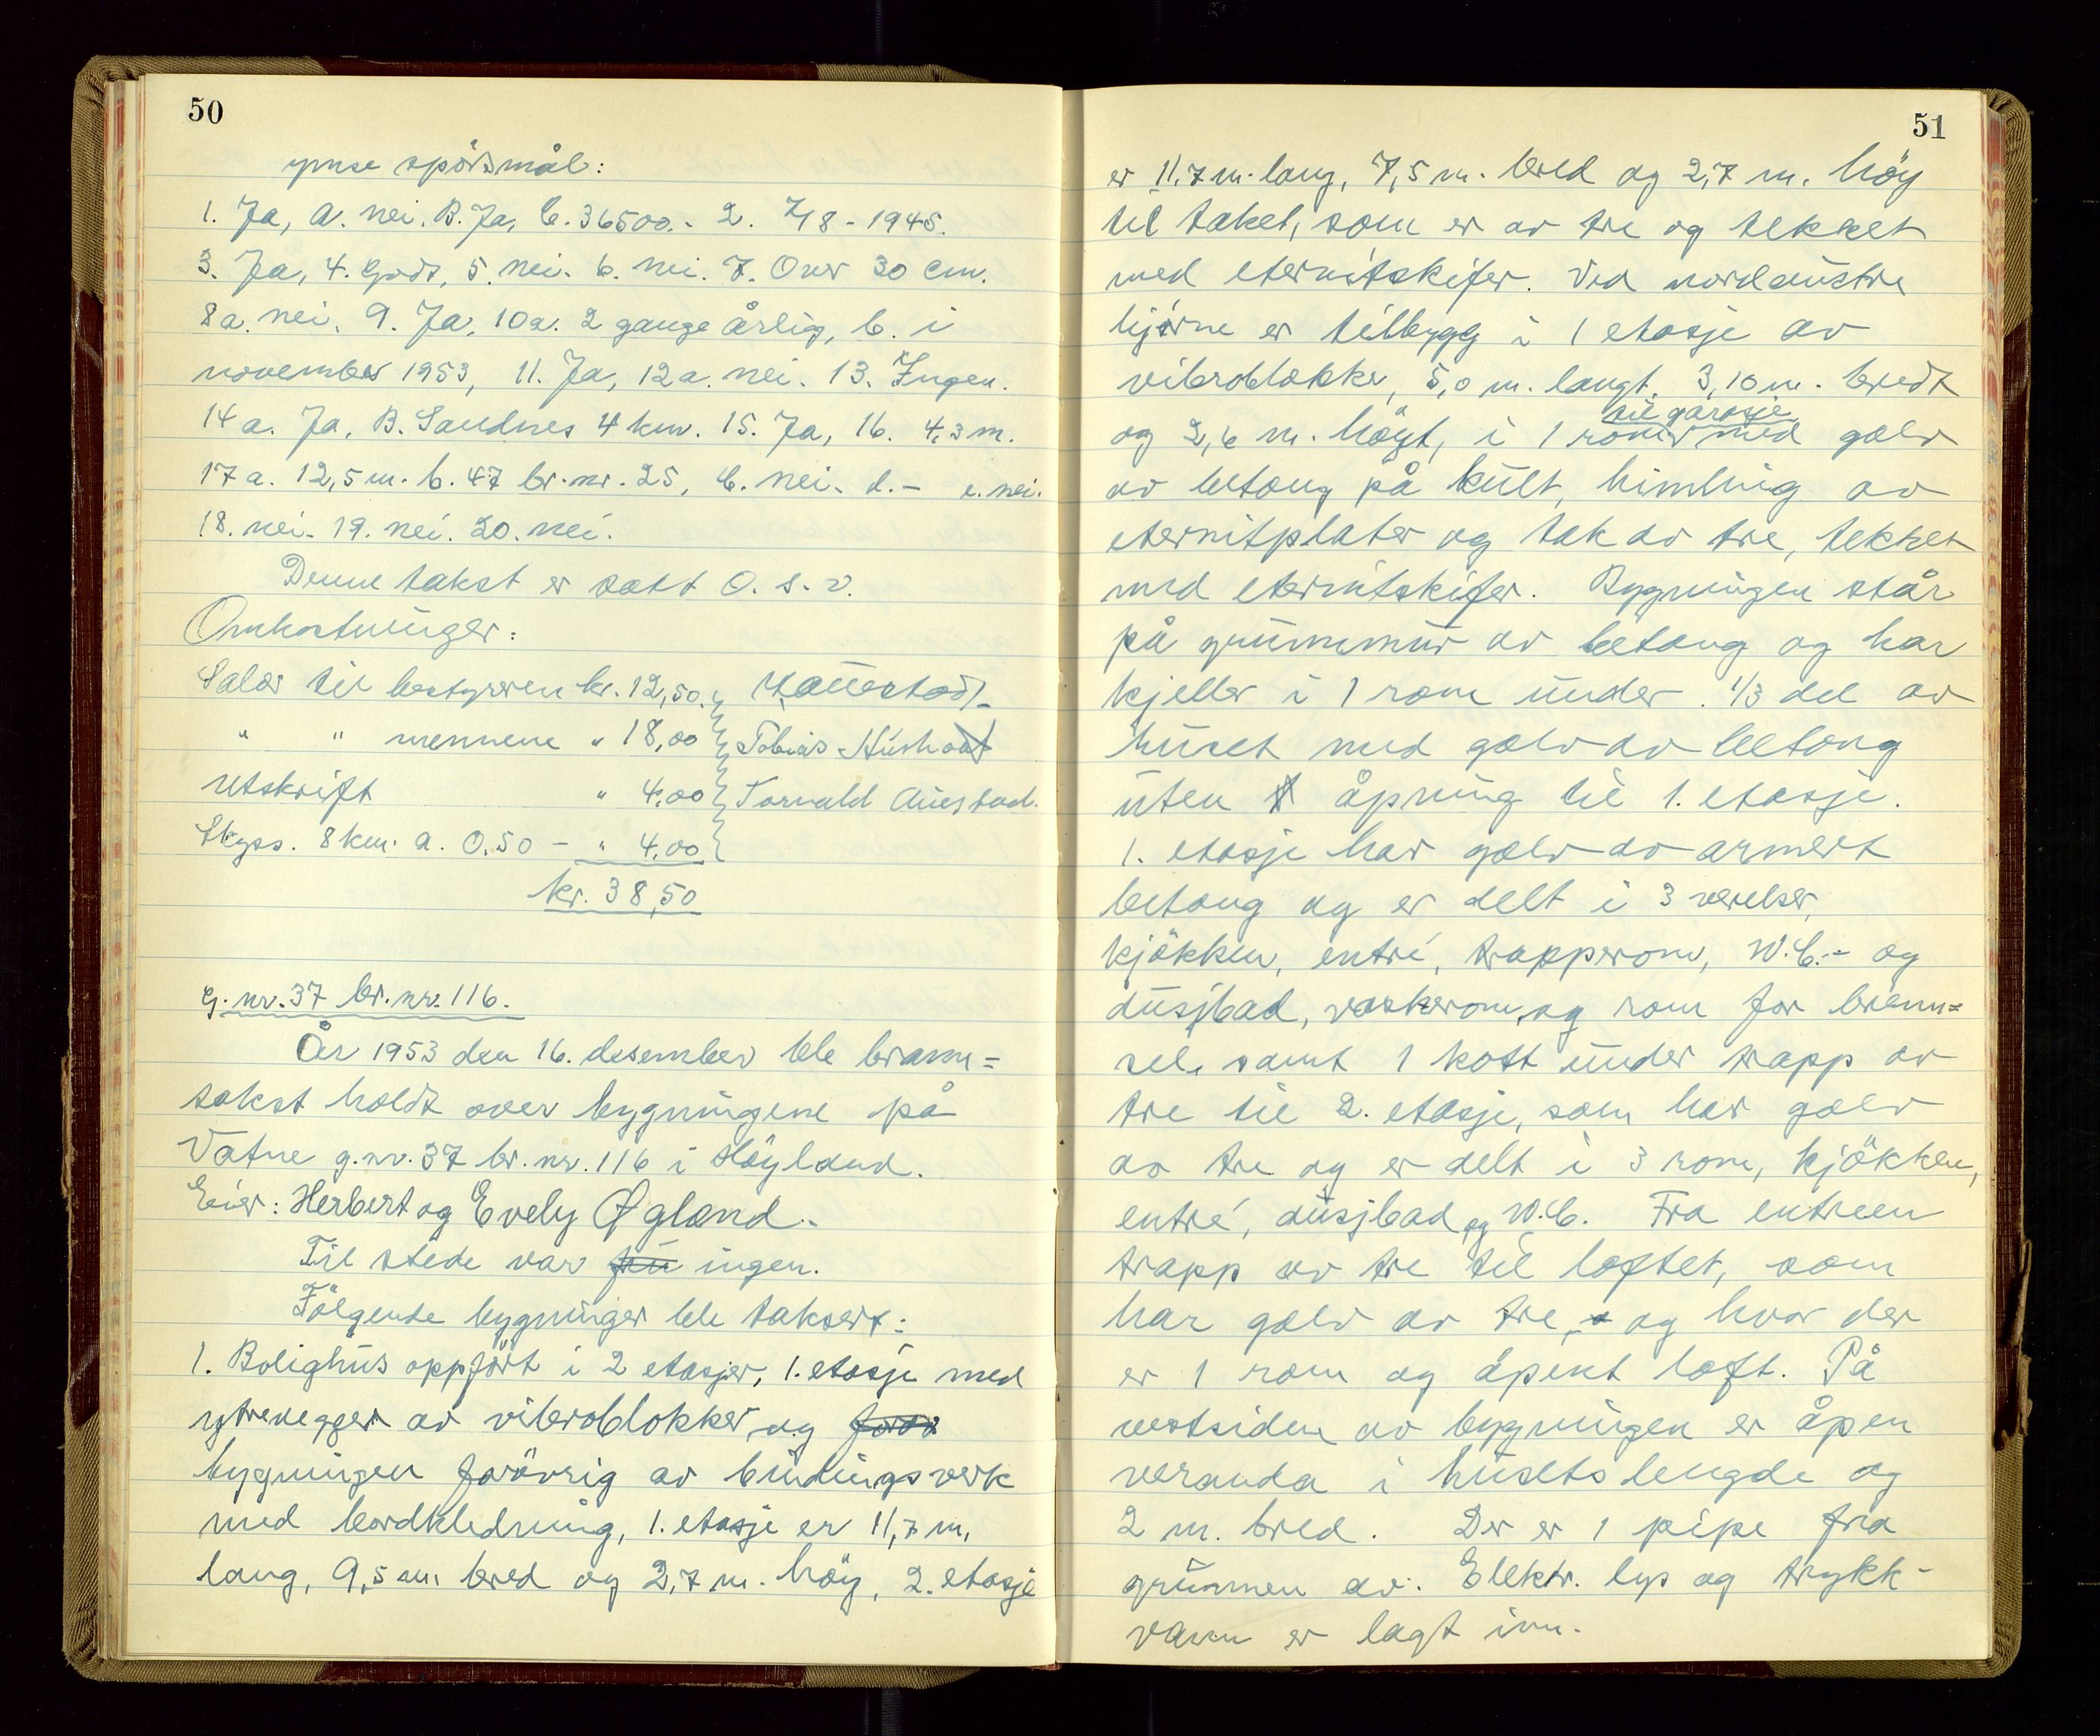 50
ymse spörsmål:
1. Ja, a. nei. B. Ja, C. 36500.- 2. 7/8 - 1945.
3. Ja, 4. Godt, 5. nei. 6. nei. 7. Over 30 cm.
8a. nei. 9. Ja, 10a. 2 gange årlig, b. i
november 1953, 11. Ja, 12a. nei. 13. Ingen.
14 a. Ja, B. Sandnes 4 km. 15. Ja, 16. 4,3 m.
17 a. 12,5 m. b. 47 br. nr. 25, C. nei. d. - e. nei.
18. nei. 19. nei. 20. nei.
Denne takst er satt O. s. v.
Omkostninger:
Salær til bestyreren kr. 12,50.
" " mennene " 18,00 Tobias
utskrift " 4,00 Torvald Auestad.
Skyss. 8 km. a. 0.50 - " 4,00
kr. 38,50
G. nr. 37 br. nr. 116.
År 1953 den 16. desember ble brann=
takst holdt over bygningene på
Vatne g. nr. 37 br. nr. 116 i Höyland.
Eier: Herbert og Evely Øgland.
Til stede var ingen.
Fölgende bygninger ble taksert:
1. Bolighus oppfört i 2 etasjer, 1. etasje med
yttrevegger av vibroblokker og
bygningen forövrig av bindingsverk
med bordkledning, 1. etasje er 11,7 m.
lang, 9,5 m. bred og 2,7 m. höy, 2. etasje
51
er 11,7 m. lang, 7,5 m. bred og 2,7 m. höy
til taket, som er av tre og tekket
med eternitskifer. Ved nordaustre
hjörne er tilbygg i 1 etasje av
vibroblokker, 5,0 m. langt, 3,10 m. bredt
til garasje
og 2,6 m. höyt, i 1 rom med golv
av betong på kult, himling av
eternitplater og tak av tre, tekket
med eternitskifer. Bygningen står
på grunnmur av betong og har
kjeller i 1 rom under 1/3 del av
huset med golv av betong
uten åpning til 1. etasje.
1. etasje har golv av armert
betong og er delt i 3 verelser,
kjökken, entré, trapperom, W.C.- og
dusjbad, vaskerom, og rom for bren=
sel, samt 1 kott under trapp av
tre til 2. etasje, som har golv
av tre og er delt i 3 rom, kjökken,
entré, dusjbad og W.C. Fra entreen
trapp av tre til loftet, som
har golv av tre, og hvor der
er 1 rom og åpent loft. På
vestsiden av bygningen er åpen
veranda i husets lengde og
2 m. bred. Der er 1 pipe fra
grunnen av. Elektr. lys og trykk-
vann er lagt inn.